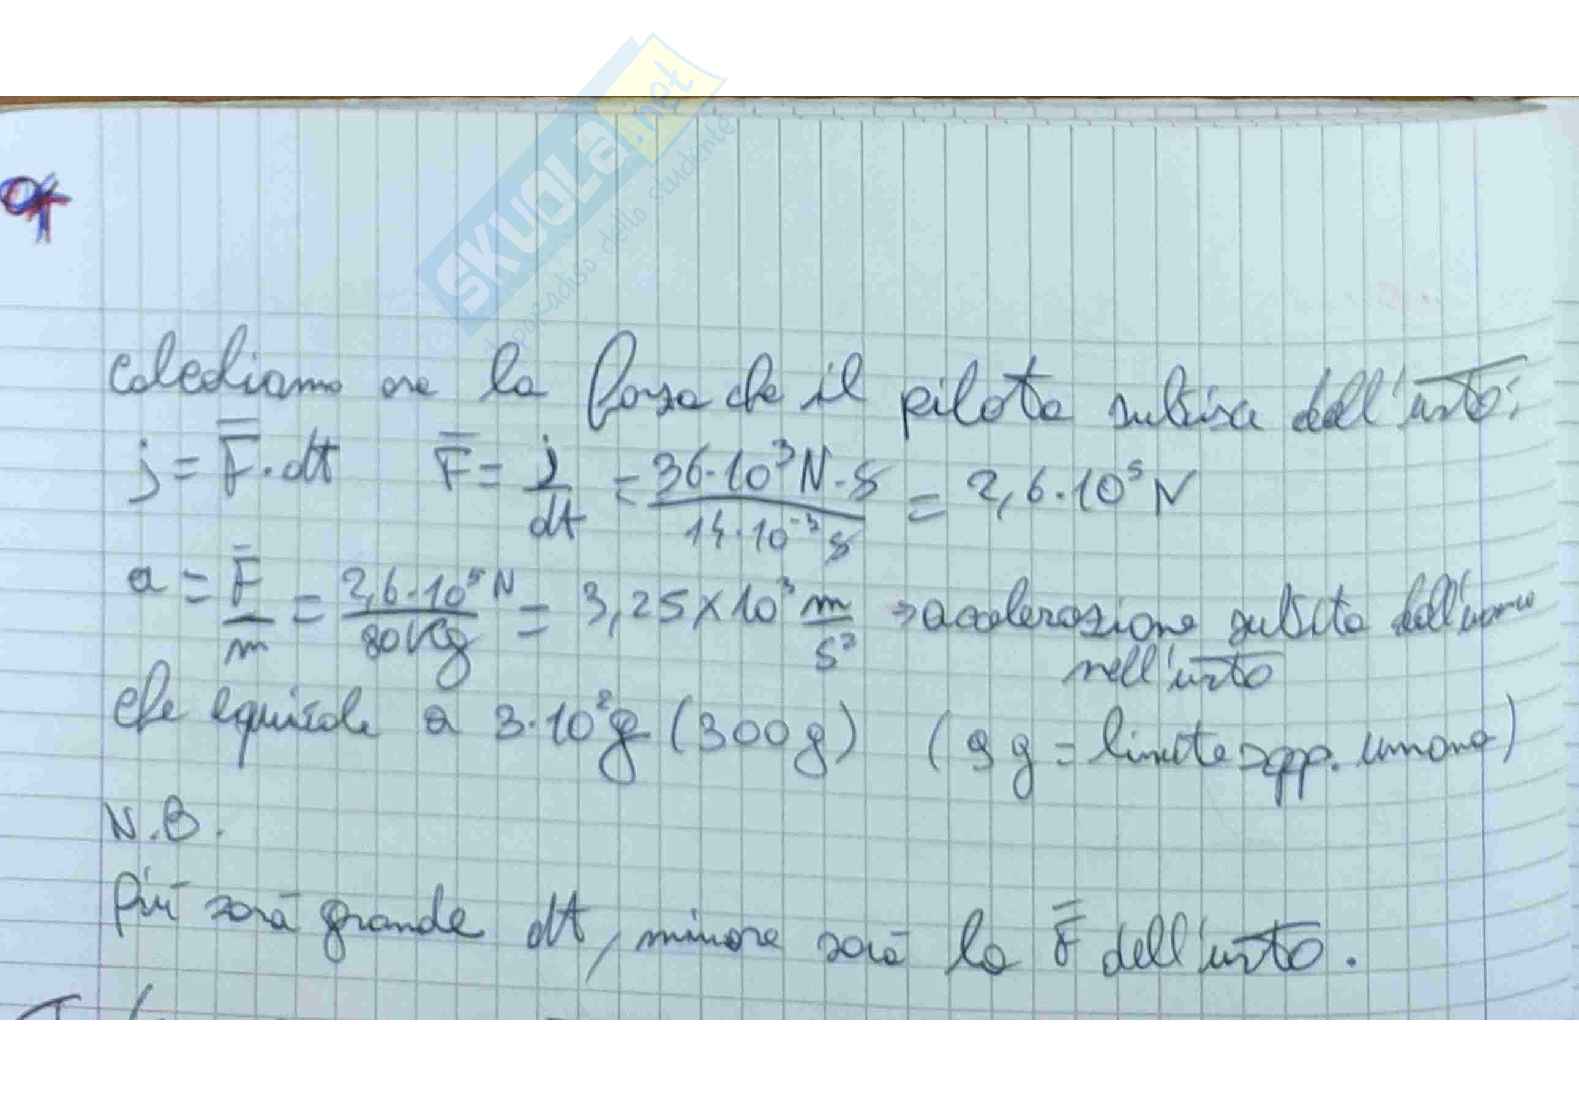 SKUOLA.net
il paradiso dello studente
Calcoliamo ora la forza che il pilota subisce dall'urto:
j = F̿ · dt F̿ = j/dt = 36·10³ N·s / 14·10⁻³ s = 2,6·10⁵ N
a = F̿/m = 2,6·10⁵ N / 80 Kg = 3,25×10³ m/s² → accelerazione subita dall'uomo
nell'urto
che equivale a 3·10² g (300g) (9g = limite sopp. umana)
N.B.
Più sarà grande dt, minore sarà la F̿ dell'urto.